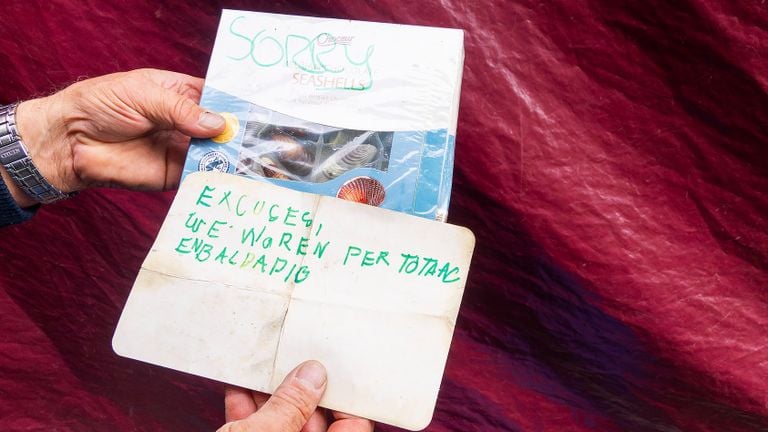 SORRY
SEASHELLS
EXCUCES,
WE WOREN PER TOTAAC
ENBALDADIG